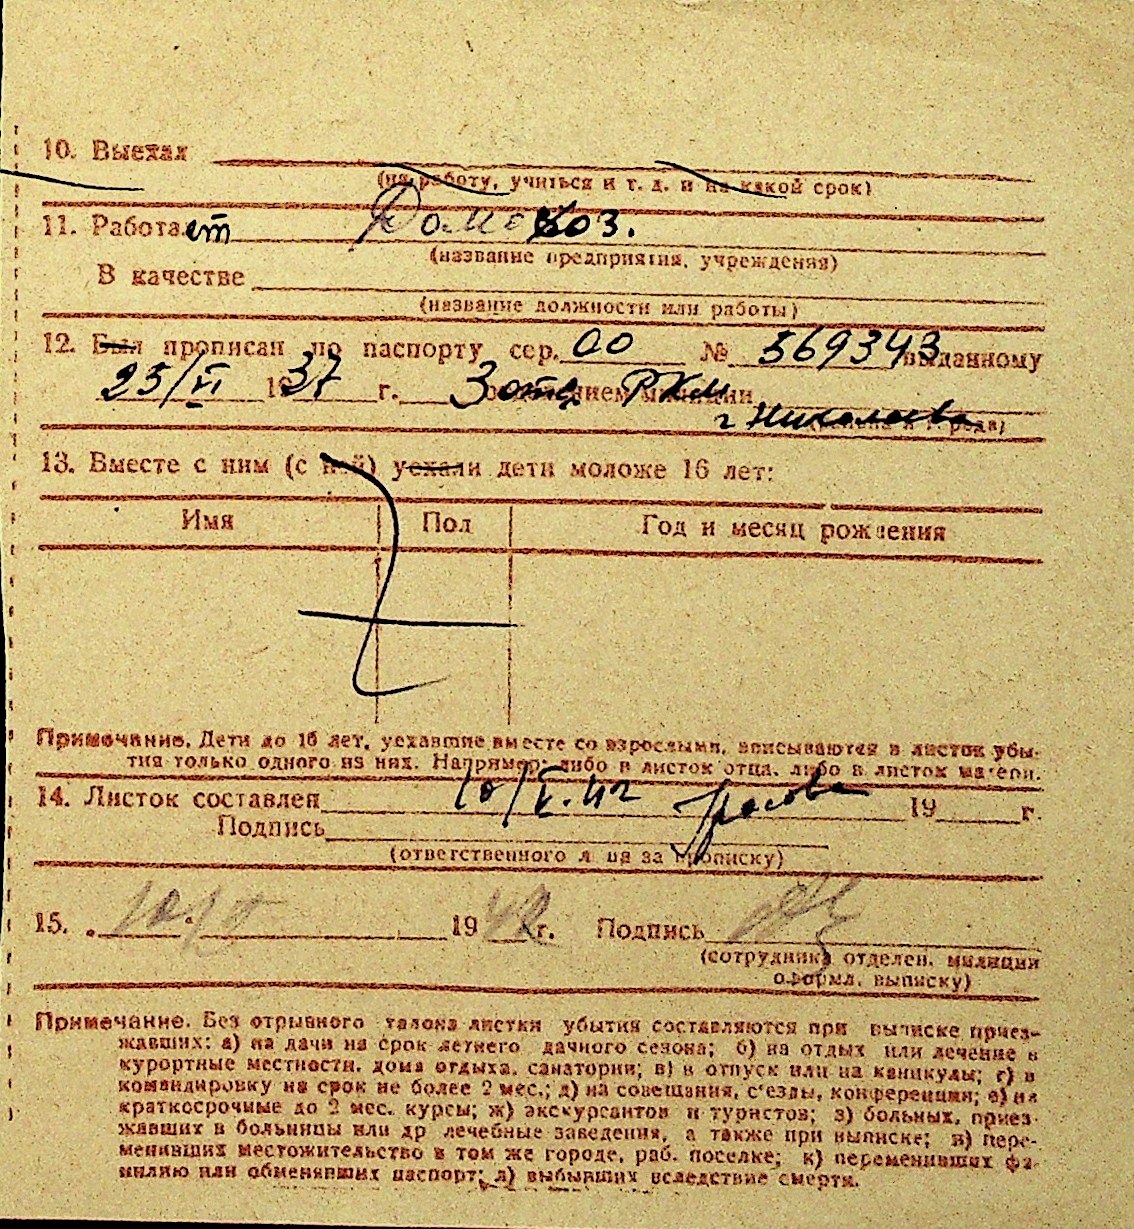 10. Выехал
(на работу, учиться и т. д. и на какой срок)
11. Работает Домохоз.
(название предприятия, учреждения)
В качестве
(название должности или работы)
12. Был прописан по паспорту сер. 00 № 569343 выданному
25/VI 1937 г. 3 отд. РКМ
г Николаева
13. Вместе с ним (с ней) уехали дети моложе 16 лет:
Имя Пол Год и месяц рождения
Примечание. Дети до 16 лет, уехавшие вместе со взрослыми, вписываются в листок убы-
тия только одного из них. Например: либо в листок отца, либо в листок матери.
14. Листок составлен 10/V.42 19 г.
Подпись
(ответственного лица за прописку)
15. 10/V 1942 г. Подпись
(сотрудника отделен. милиции
оформл. выписку)
Примечание. Без отрывного талона листки убытия составляются при выписке приез-
жавших: а) на дачи на срок летнего дачного сезона; б) на отдых или лечение в
курортные местности, дома отдыха, санатории; в) в отпуск или на каникулы; г) в
командировку на срок не более 2 мес.; д) на совещания, с'езды, конференции; е) на
краткосрочные до 2 мес. курсы; ж) экскурсантов и туристов; з) больных, приез-
жавших в больницы или др лечебные заведения, а также при выписке; и) пере-
менивших местожительство в том же городе, раб. поселке; к) переменивших фа-
милию или обменявших паспорт; л) выбывших вследствие смерти.